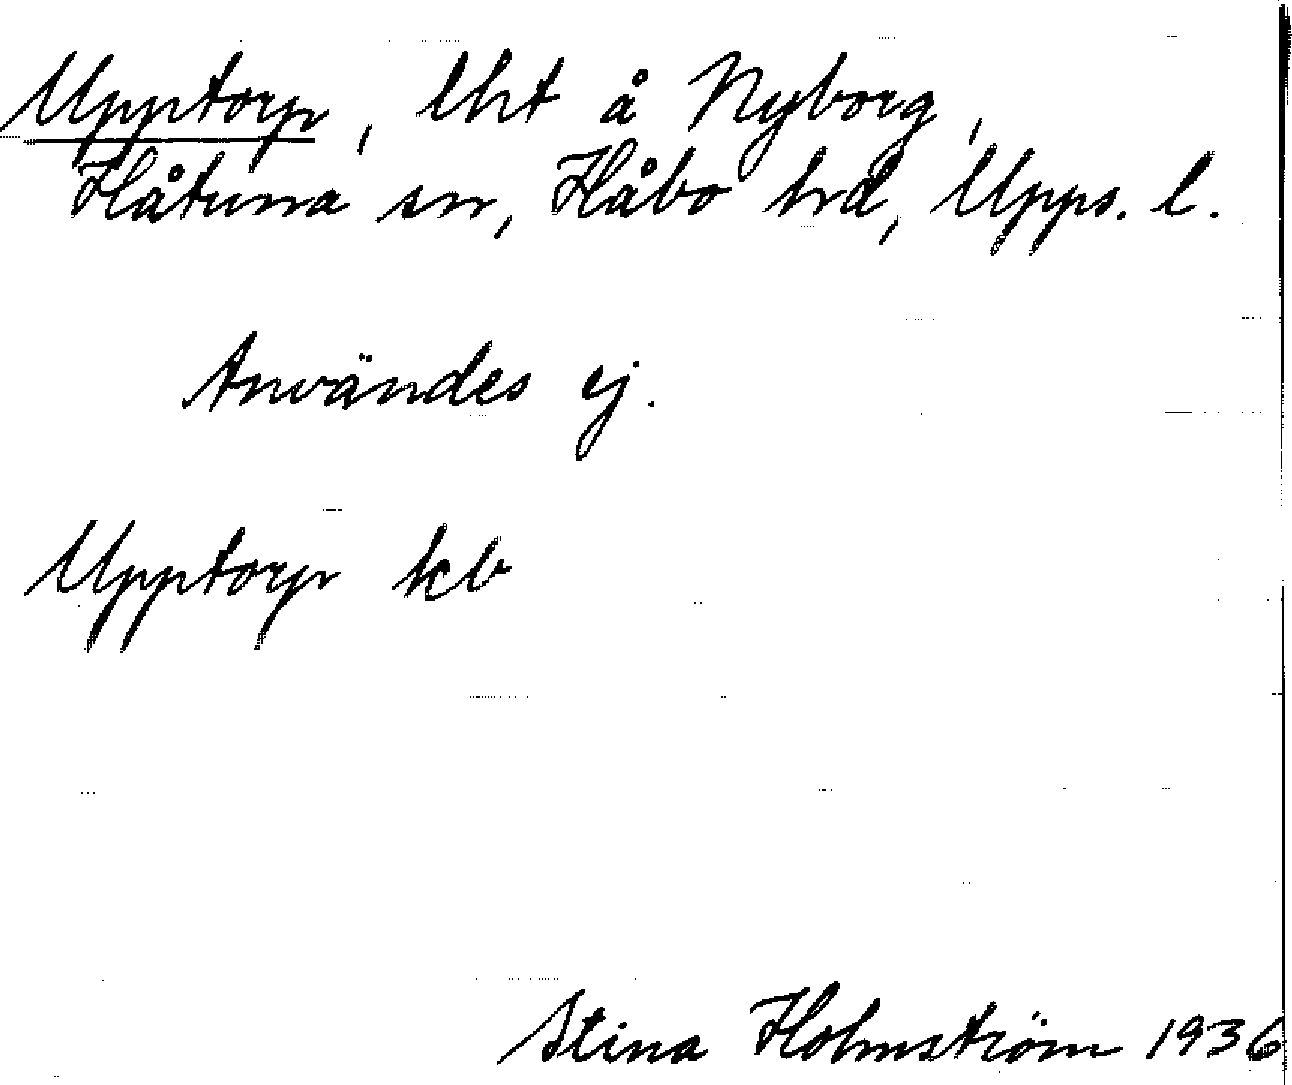 Upptorp, lht å Nyborg,
Håtuna sn, Håbo hd, Upps. l.
Användes ej.
Upptorp kb
Stina Holmström 1936